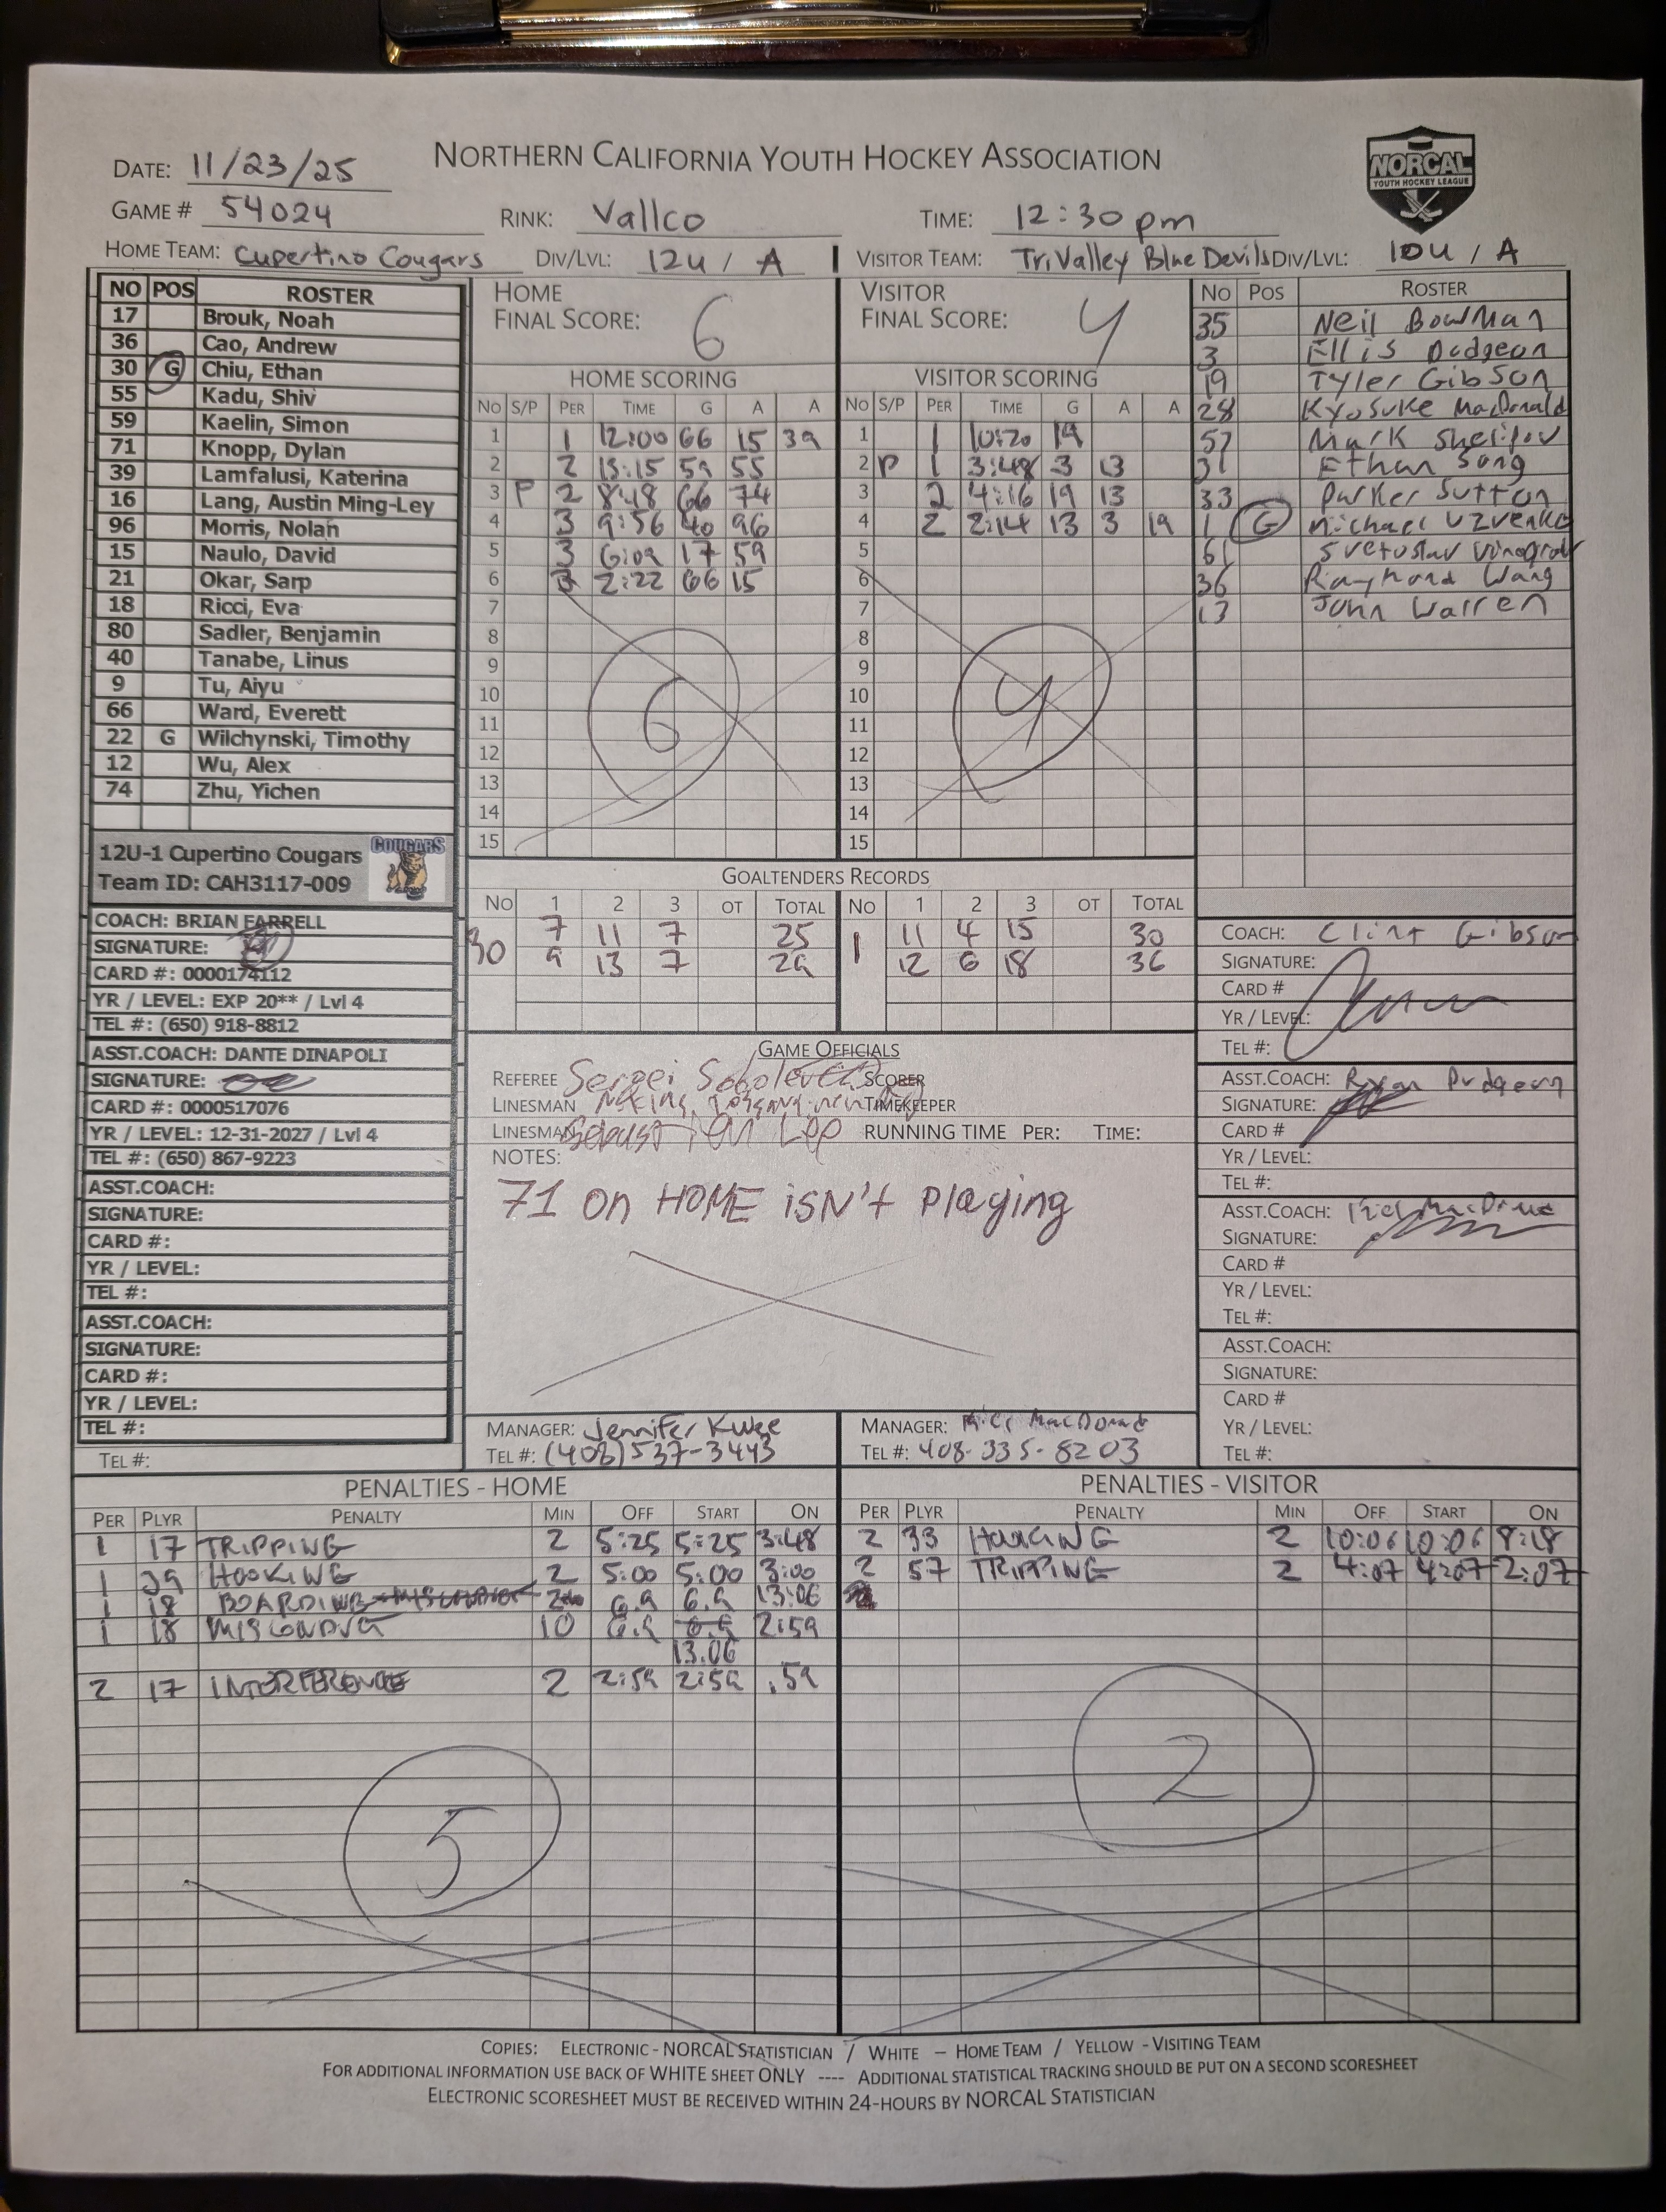 NORTHERN CALIFORNIA YOUTH HOCKEY ASSOCIATION
NORCAL
YOUTH HOCKEY LEAGUE
DATE: 11/23/25
GAME # 54024 RINK: Vallco TIME: 12:30 pm
HOME TEAM: Cupertino Cougars DIV/LVL: 12U / A VISITOR TEAM: TriValley Blue Devils DIV/LVL: 10U / A
NO POS ROSTER
17 Brouk, Noah
36 Cao, Andrew
30 G Chiu, Ethan
55 Kadu, Shiv
59 Kaelin, Simon
71 Knopp, Dylan
39 Lamfalusi, Katerina
16 Lang, Austin Ming-Ley
96 Morris, Nolan
15 Naulo, David
21 Okar, Sarp
18 Ricci, Eva
80 Sadler, Benjamin
40 Tanabe, Linus
9 Tu, Aiyu
66 Ward, Everett
22 G Wilchynski, Timothy
12 Wu, Alex
74 Zhu, Yichen
12U-1 Cupertino Cougars
Team ID: CAH3117-009
COUGARS
COACH: BRIAN FARRELL
SIGNATURE:
CARD #: 0000174112
YR / LEVEL: EXP 20** / Lvl 4
TEL #: (650) 918-8812
ASST.COACH: DANTE DINAPOLI
SIGNATURE:
CARD #: 0000517076
YR / LEVEL: 12-31-2027 / Lvl 4
TEL #: (650) 867-9223
ASST.COACH:
SIGNATURE:
CARD #:
YR / LEVEL:
TEL #:
ASST.COACH:
SIGNATURE:
CARD #:
YR / LEVEL:
TEL #:
TEL #:
HOME
FINAL SCORE: 6
HOME SCORING
NO S/P PER TIME G A A
1 1 12:00 66 15 39
2 2 13:15 59 55
3 P 2 8:48 66 74
4 3 9:56 40 96
5 3 6:09 17 59
6 3 2:22 66 15
7
8
9
10
11
12
13
14
15
6
VISITOR
FINAL SCORE: 4
VISITOR SCORING
NO S/P PER TIME G A A
1 1 10:20 19
2 P 1 3:48 3 13
3 2 4:16 19 13
4 2 2:14 13 3 19
5
6
7
8
9
10
11
12
13
14
15
4
NO POS ROSTER
35 Neil Bowman
3 Ellis Dodgeon
19 Tyler Gibson
28 Kyosuke MacDonald
57 Mark Sheripov
31 Ethan Song
33 Parker Sutton
1 G Michael
61
36 Raymond Wang
13 John Warren
GOALTENDERS RECORDS
NO 1 2 3 OT TOTAL NO 1 2 3 OT TOTAL
30 7 11 7 25 1 11 4 15 30
9 13 7 29 12 6 18 36
GAME OFFICIALS
REFEREE Sergei SCORER
LINESMAN TIMEKEEPER
LINESMAN Sebastian Lee RUNNING TIME PER: TIME:
NOTES:
71 on HOME isn't playing
MANAGER: Jennifer Kwee
TEL #: (408) 537-3443
MANAGER: MacDonald
TEL #: 408-335-8203
COACH: Clint Gibson
SIGNATURE:
CARD #
YR / LEVEL:
TEL #:
ASST.COACH: Ryan Dudgeon
SIGNATURE:
CARD #
YR / LEVEL:
TEL #:
ASST.COACH:
SIGNATURE:
CARD #
YR / LEVEL:
TEL #:
ASST.COACH:
SIGNATURE:
CARD #
YR / LEVEL:
TEL #:
PENALTIES - HOME
PER PLYR PENALTY MIN OFF START ON
1 17 TRIPPING 2 5:25 5:25 3:48
1 39 HOOKING 2 5:00 5:00 3:00
1 18 BOARDING 2 6.9 6.9 13:06
1 18 MISCONDUCT 10 6.9 6.9 2:59
13.06
2 17 INTERFERENCE 2 2:59 2:59 .59
5
PENALTIES - VISITOR
PER PLYR PENALTY MIN OFF START ON
2 33 HOOKING 2 10:06 10:06 8:48
2 57 TRIPPING 2 4:07 4:07 2:07
2
COPIES: ELECTRONIC - NORCAL STATISTICIAN / WHITE – HOME TEAM / YELLOW - VISITING TEAM
FOR ADDITIONAL INFORMATION USE BACK OF WHITE SHEET ONLY ---- ADDITIONAL STATISTICAL TRACKING SHOULD BE PUT ON A SECOND SCORESHEET
ELECTRONIC SCORESHEET MUST BE RECEIVED WITHIN 24-HOURS BY NORCAL STATISTICIAN